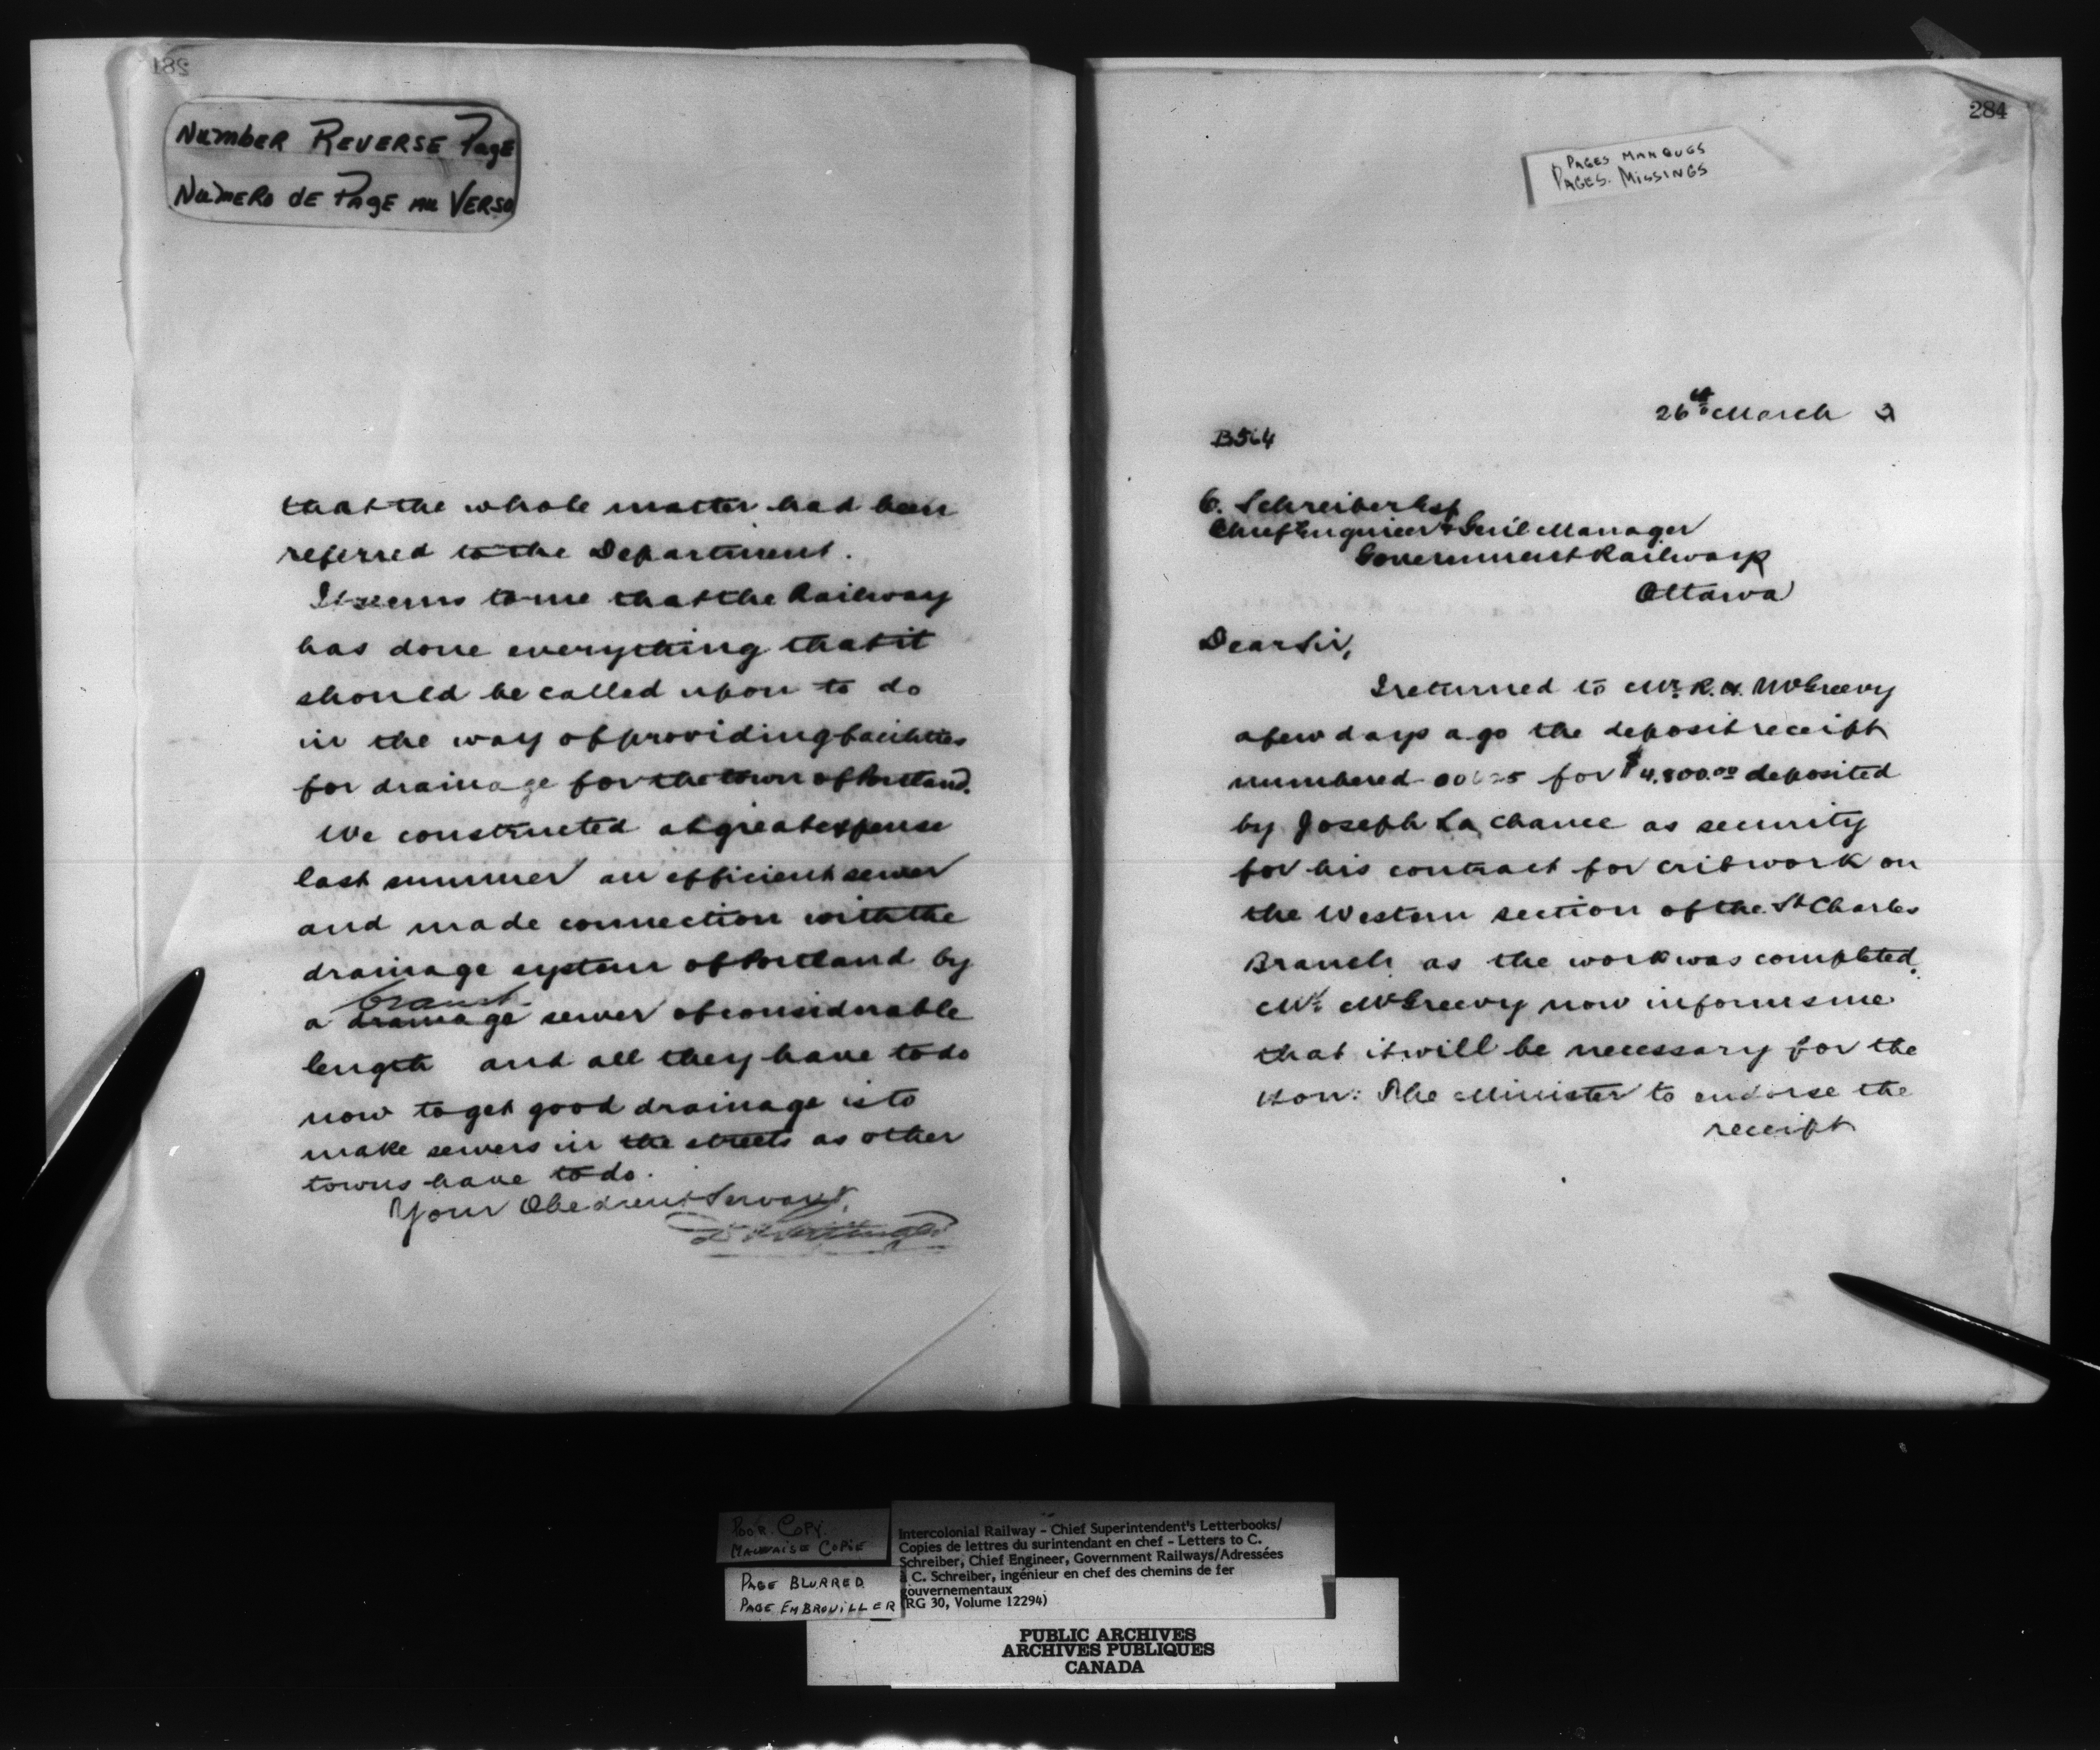 281
NUMBER REVERSE PAGE
NUMERO DE PAGE AU VERSO
that the whole matter had been
referred to the Department.
It seems to me that the Railway
has done everything that it
should be called upon to do
in the way of providing facilities
for drainage for the town of Portland.
We constructed at great expense
last summer an efficient sewer
and made connection with the
drainage system of Portland by
branch
a drainage sewer of considerable
length and all they have to do
now to get good drainage is to
make sewers in the streets as other
towns have to do.
Your Obedient Servant,
284
PAGES MANQUES
PAGES MISSINGS
26th March 3
B564
C. Schreiber Esq
Chief Engineer & Genl Manager
Government Railways
Ottawa
Dear Sir,
I returned to Mr. R. H. McGreevy
a few days ago the deposit receipt
numbered for $4,800.00 deposited
by Joseph La Chance as security
for his contract for cribwork on
the Western section of the St Charles
Branch as the work was completed.
Mr. McGreevy now informs me
that it will be necessary for the
Hon: The Minister to endorse the
receipt
POOR COPY
MAUVAISE COPIE
PAGE BLURRED
PAGE EMBROUILLER
Intercolonial Railway - Chief Superintendent's Letterbooks/
Copies de lettres du surintendant en chef - Letters to C.
Schreiber, Chief Engineer, Government Railways/Adressées
à C. Schreiber, ingénieur en chef des chemins de fer
gouvernementaux
(RG 30, Volume 12294)
PUBLIC ARCHIVES
ARCHIVES PUBLIQUES
CANADA